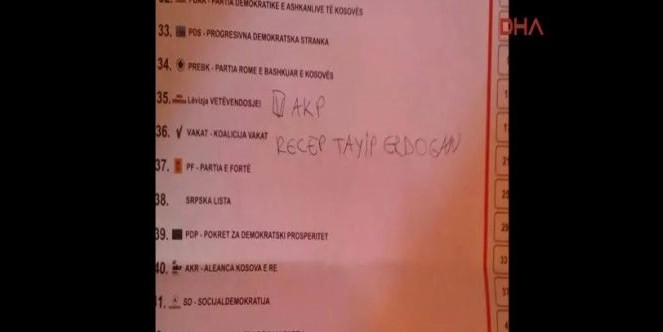 DHA
PDAK - PARTIA DEMOKRATIKE E ASHKANLIVE TË KOSOVËS
33. PDS - PROGRESIVNA DEMOKRATSKA STRANKA
34. PREBK - PARTIA ROME E BASHKUAR E KOSOVËS
35. Lëvizja VETËVENDOSJE! AKP
36. VAKAT - KOALICIJA VAKAT
RECEP TAYİP ERDOGAN
37. PF - PARTIA E FORTË
38. SRPSKA LISTA
39. PDP - POKRET ZA DEMOKRATSKI PROSPERITET
40. AKR - ALEANCA KOSOVA E RE
SD - SOCIJALDEMOKRATIJA